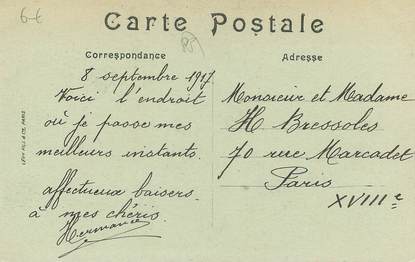 6-€
Carte Postale
Correspondance
Adresse
8 septembre 1917
Voici l'endroit
où je passe mes
meilleurs instants.
affectueux baisers
à mes chéris.
Hermance
Monsieur et Madame
H Bressoles
70 rue Marcadet
Paris
XVIIIe
LÉVY FILS & CIE, PARIS